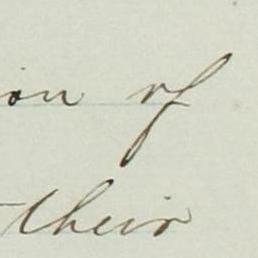 ion of
their